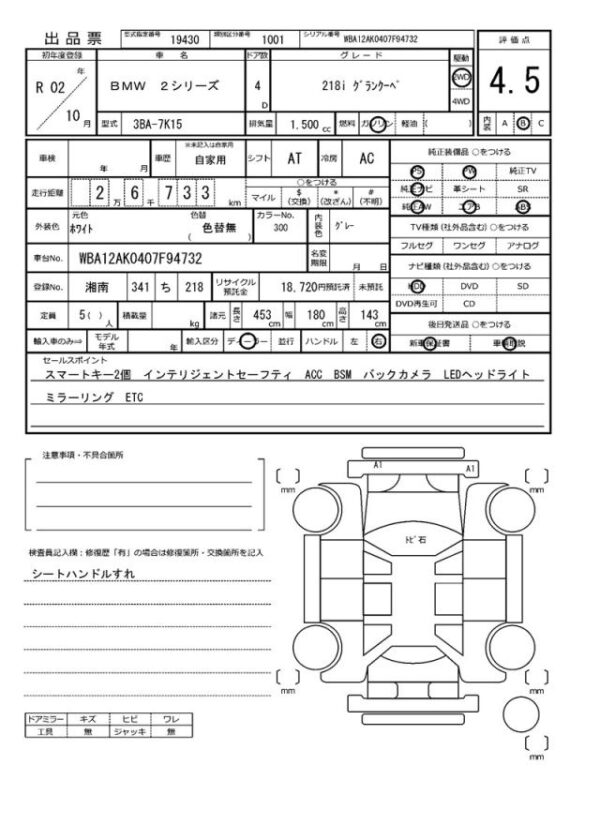 出品票 型式指定番号 19430 類別区分番号 1001 シリアル番号 WBA12AK0407F94732
評価点
4.5
内装 A B C
初年度登録 車名 ドア数 グレード 駆動
R 02 年 10 月
BMW 2シリーズ 4 D 218i グランクーペ 2WD 4WD
型式 3BA-7K15 排気量 1,500 cc 燃料 ガソリン 軽油 ( )
車検 年 月 車歴 ※未記入は自家用 自家用 シフト AT 冷房 AC
走行距離 2 万 6 千 7 3 3 km
○をつける
マイル $ (交換) * (改ざん) # (不明)
外装色 元色 ホワイト 色替 ( 色替無 ) カラーNo. 300 内装色 グレー
車台No. WBA12AK0407F94732 名変期限 月 日
登録No. 湘南 341 ち 218 リサイクル預託金 18,720円預託済 未預託
定員 5 ( ) 人 積載量 kg 諸元 長さ 453 cm 幅 180 cm 高さ 143 cm
輸入車のみ⇒ モデル年式 年 輸入区分 ディーラー 並行 ハンドル 左 右
純正装備品 ○をつける
PS PW 純正TV
純正ナビ 革シート SR
純正AW エアB ABS
TV種類(社外品含む) ○をつける
フルセグ ワンセグ アナログ
ナビ種類(社外品含む) ○をつける
HDD DVD SD
DVD再生可 CD
後日発送品 ○をつける
新車保証書 車輌取説
セールスポイント
スマートキー2個 インテリジェントセーフティ ACC BSM バックカメラ LEDヘッドライト
ミラーリング ETC
注意事項・不具合箇所
検査員記入欄：修復歴「有」の場合は修復箇所・交換箇所を記入
シートハンドルすれ
ドアミラー キズ ヒビ ワレ
工具 無 ジャッキ 無
A1 A1
トビ石
mm mm
mm mm
mm